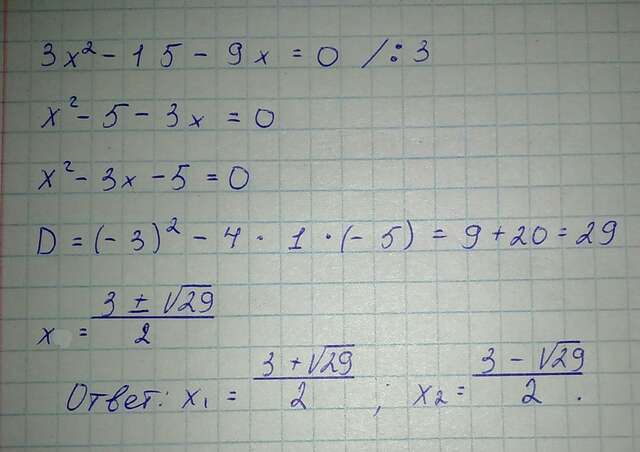 3x² - 15 - 9x = 0 /:3
x² - 5 - 3x = 0
x² - 3x - 5 = 0
D = (-3)² - 4 · 1 · (-5) = 9 + 20 = 29
x = (3 ± √29)/2
Ответ: x₁ = (3 + √29)/2 ; x₂ = (3 - √29)/2 .